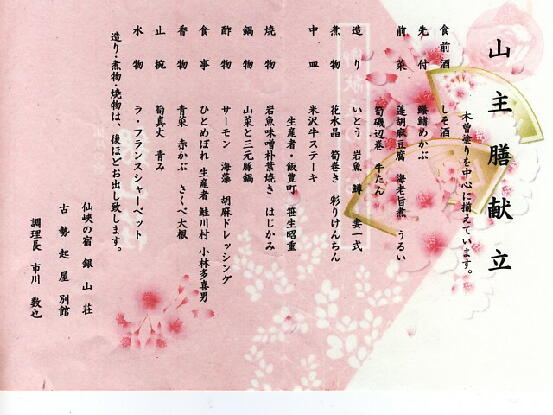 山主膳献立
木曽塗りを中心に揃えています。
食前酒 しそ酒
先付 鱶鰭めかぶ
前菜 蓮胡麻豆腐 海老旨煮 うるい
筍磯辺巻 牛たん
造り いとう 岩魚 妻一式
煮物 花水晶 筍巻き 彩りけんちん
中皿 米沢牛ステーキ
生産者・飯豊町 笹生昭重
焼物 岩魚味噌朴葉焼き はじかみ
鍋物 山菜と三元豚鍋
酢物 サーモン 海藻 胡麻ドレッシング
食事 ひとめぼれ 生産者 鮭川村 小林多喜男
香物 青菜 赤かぶ さくべ大根
止椀 筍真丈 青み
水物 ラ・フランスシャーベット
造り・煮物・焼物は、後ほどお出し致します。
仙峡の宿 銀山荘
古勢起屋別館
調理長 市川 数也